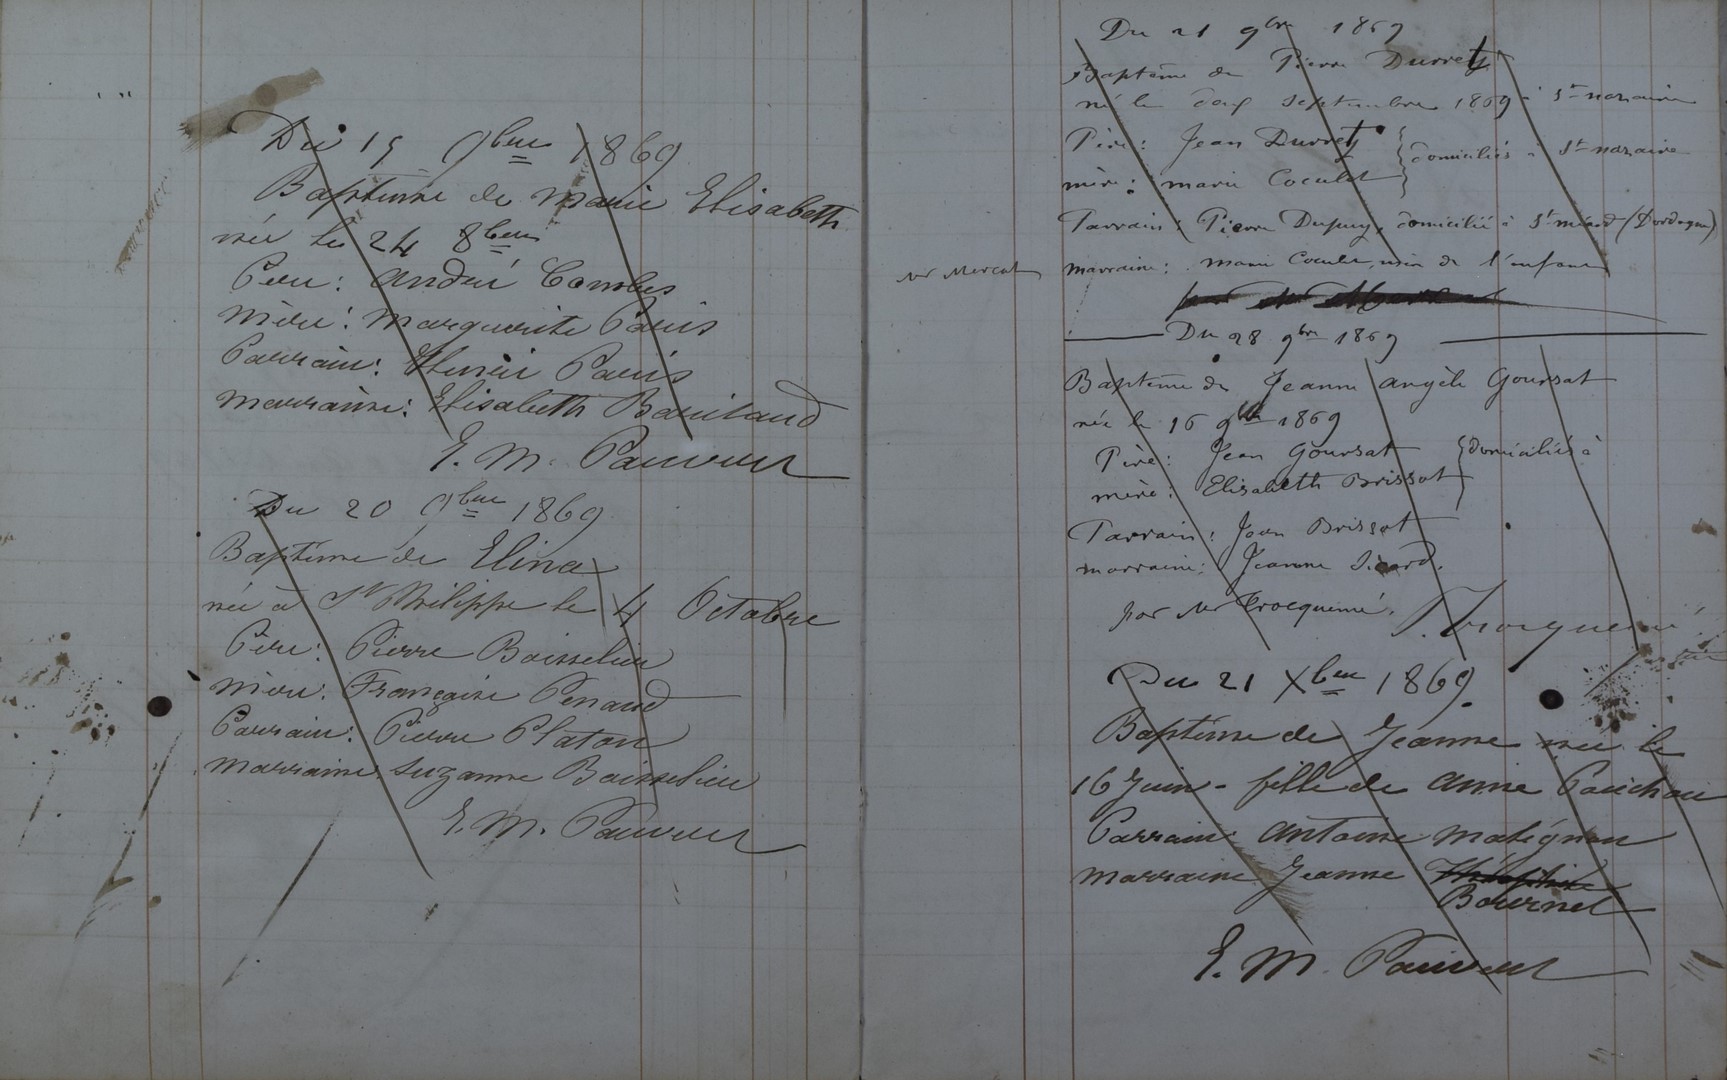 Du 15 9bre 1869
Baptême de Marie Elisabeth
née le 24 8bre
Père: André Combes
Mère: Marguerite Pauis
Parrain: Henri Pauis
Marraine: Elisabeth
E. M.
Du 20 9bre 1869
Baptême de Elina
née à St Philippe le 4 Octobre
Père: Pierre Boisselieu
Mère: Françoise Penaud
Parrain: Pierre Platon
Marraine Suzanne Boisselieu
E. M.
Du 21 9bre 1869
Baptême de Pierre Durret
né le douze septembre 1869 à St nazaire
Père: Jean Durret
mère: marie Coculet
domiciliés à St nazaire
Parrain: Pierre Dupuy, domicilié à St méard (Dordogne)
Mr Mercat
marraine: marie Coculet, de l'enfant
Du 28 9bre 1869
Baptême de Jeanne angèle Goursat
née le 16 9bre 1869
Père: Jean Goursat
mère: Elisabeth Brissot
domiciliés à
Parrain: Jean Brissot
marraine: Jeanne Sicard.
par Mr Crocquemé.
Du 21 Xbre 1869.
Baptême de Jeanne née le
16 Juin - fille de Anne Pauichou
Parrain Antoine Matignon
Marraine Jeanne
Bournet
E. M.